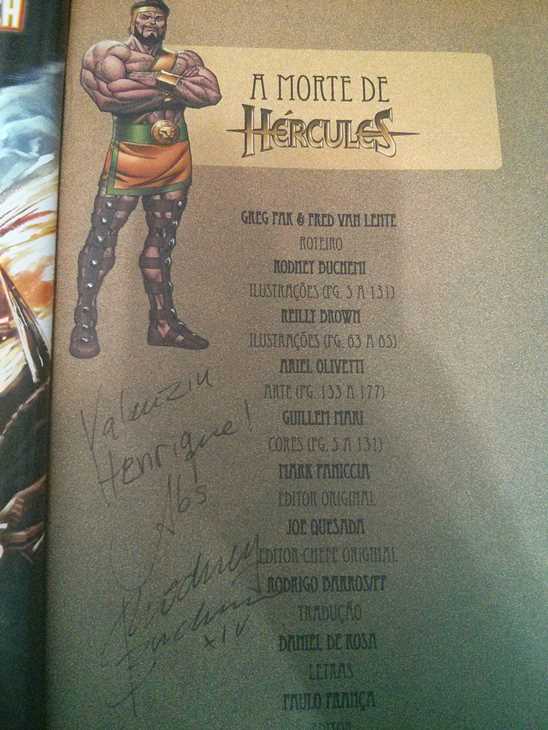 A MORTE DE
HÉRCULES
GREG PAK & FRED VAN LENTE
ROTEIRO
RODNEY BUCHEMI
ILUSTRAÇÕES (PG. 5 A 131)
REILLY BROWN
ILUSTRAÇÕES (PG. 83 A 85)
ARIEL OLIVETTI
ARTE (PG. 133 A 177)
GUILLEM MARI
CORES (PG. 5 A 131)
MARK PANICCIA
EDITOR ORIGINAL
JOE QUESADA
EDITOR-CHEFE ORIGINAL
RODRIGO BARROS/FF
TRADUÇÃO
DANIEL DE ROSA
LETRAS
PAULO FRANÇA
EDITOR
Henrique!
Abs
Rodney
Buchemi
XIV